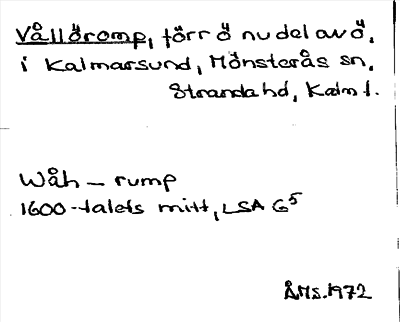 Vållöromp, förr ö nu del av ö,
i Kalmarsund, Mönsterås sn,
Stranda hd, Kalm l.
Wåh - rump
1600-talets mitt, LSA G5
ÅMs. 1972